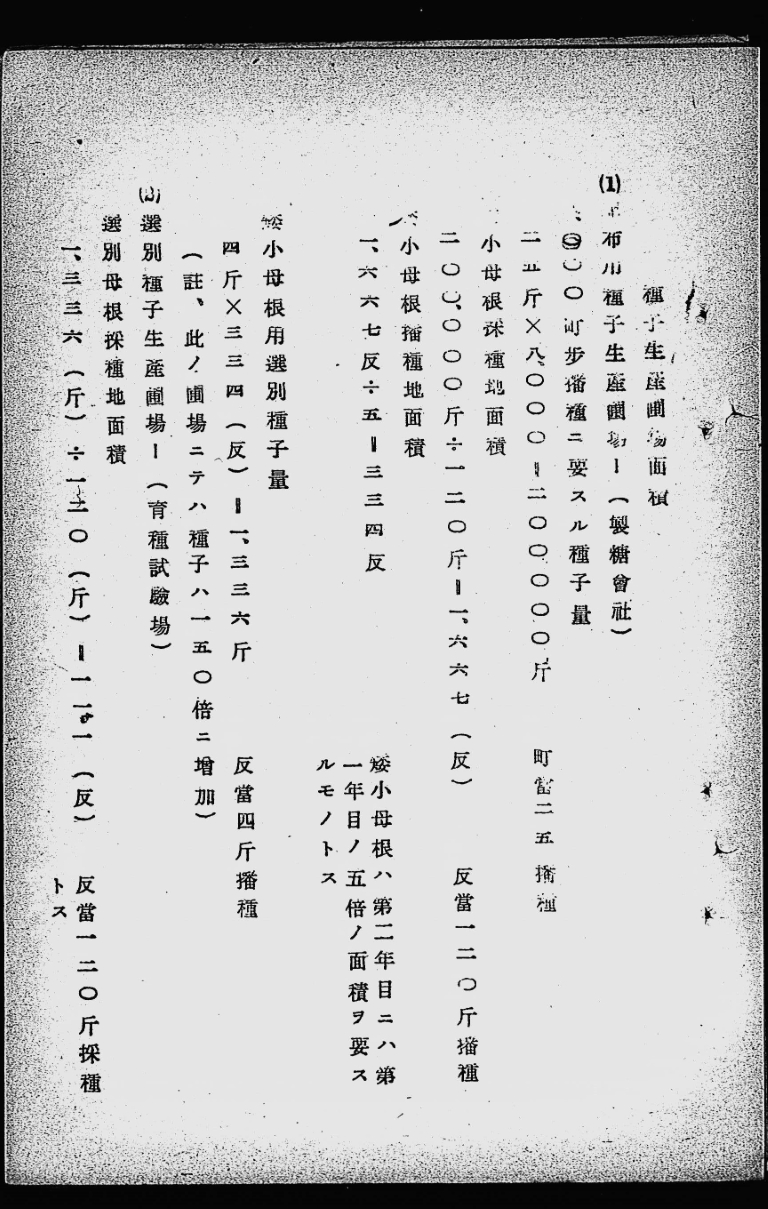 種子生産圃場面積
(1) 布用種子生産圃場ー(製糖會社)
〇〇〇町步播種ニ要スル種子量
二五斤×八、〇〇〇＝二〇〇〇〇〇斤 町當二五播種
小母根採種地面積
二〇〇、〇〇〇斤÷一二〇斤＝一、六六七(反) 反當一二〇斤播種
小母根播種地面積
一、六六七反÷五＝三三四反
矮小母根ハ第二年目ニハ第
一年目ノ五倍ノ面積ヲ要ス
ルモノトス
矮小母根用選別種子量
四斤×三三四(反)＝一、三三六斤 反當四斤播種
(註、此ノ圃場ニテハ種子ハ一五〇倍ニ增加)
(2) 選別種子生産圃場ー(育種試驗場)
選別母根採種地面積
一、三三六(斤)÷一二〇(斤)＝一一・一(反) 反當一二〇斤採種
トス